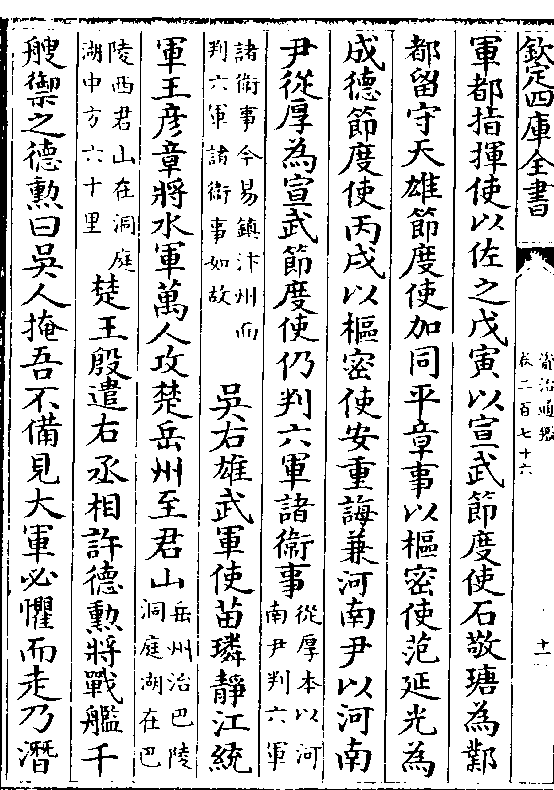 欽定四庫全書
資治通鑑
卷二百七十六
十一
軍都指揮使以佐之戊寅以宣武節度使石敬瑭為鄴
都留守天雄節度使加同平章事以樞密使范延光為
成德節度使丙戌以樞密使安重誨兼河南尹以河南
尹從厚為宣武節度使仍判六軍諸衛事
從厚本以河
南尹判六軍
諸衛事今易鎮汴州而
判六軍諸衛事如故
吳右雄武軍使苗璘靜江統
軍王彦章將水軍萬人攻楚岳州至君山
岳州治巴陵
洞庭湖在巴
陵西君山在洞庭
湖中方六十里
楚王殷遣右丞相許德勲將戰艦千
艘禦之德勲曰吳人掩吾不備見大軍必懼而走乃潛